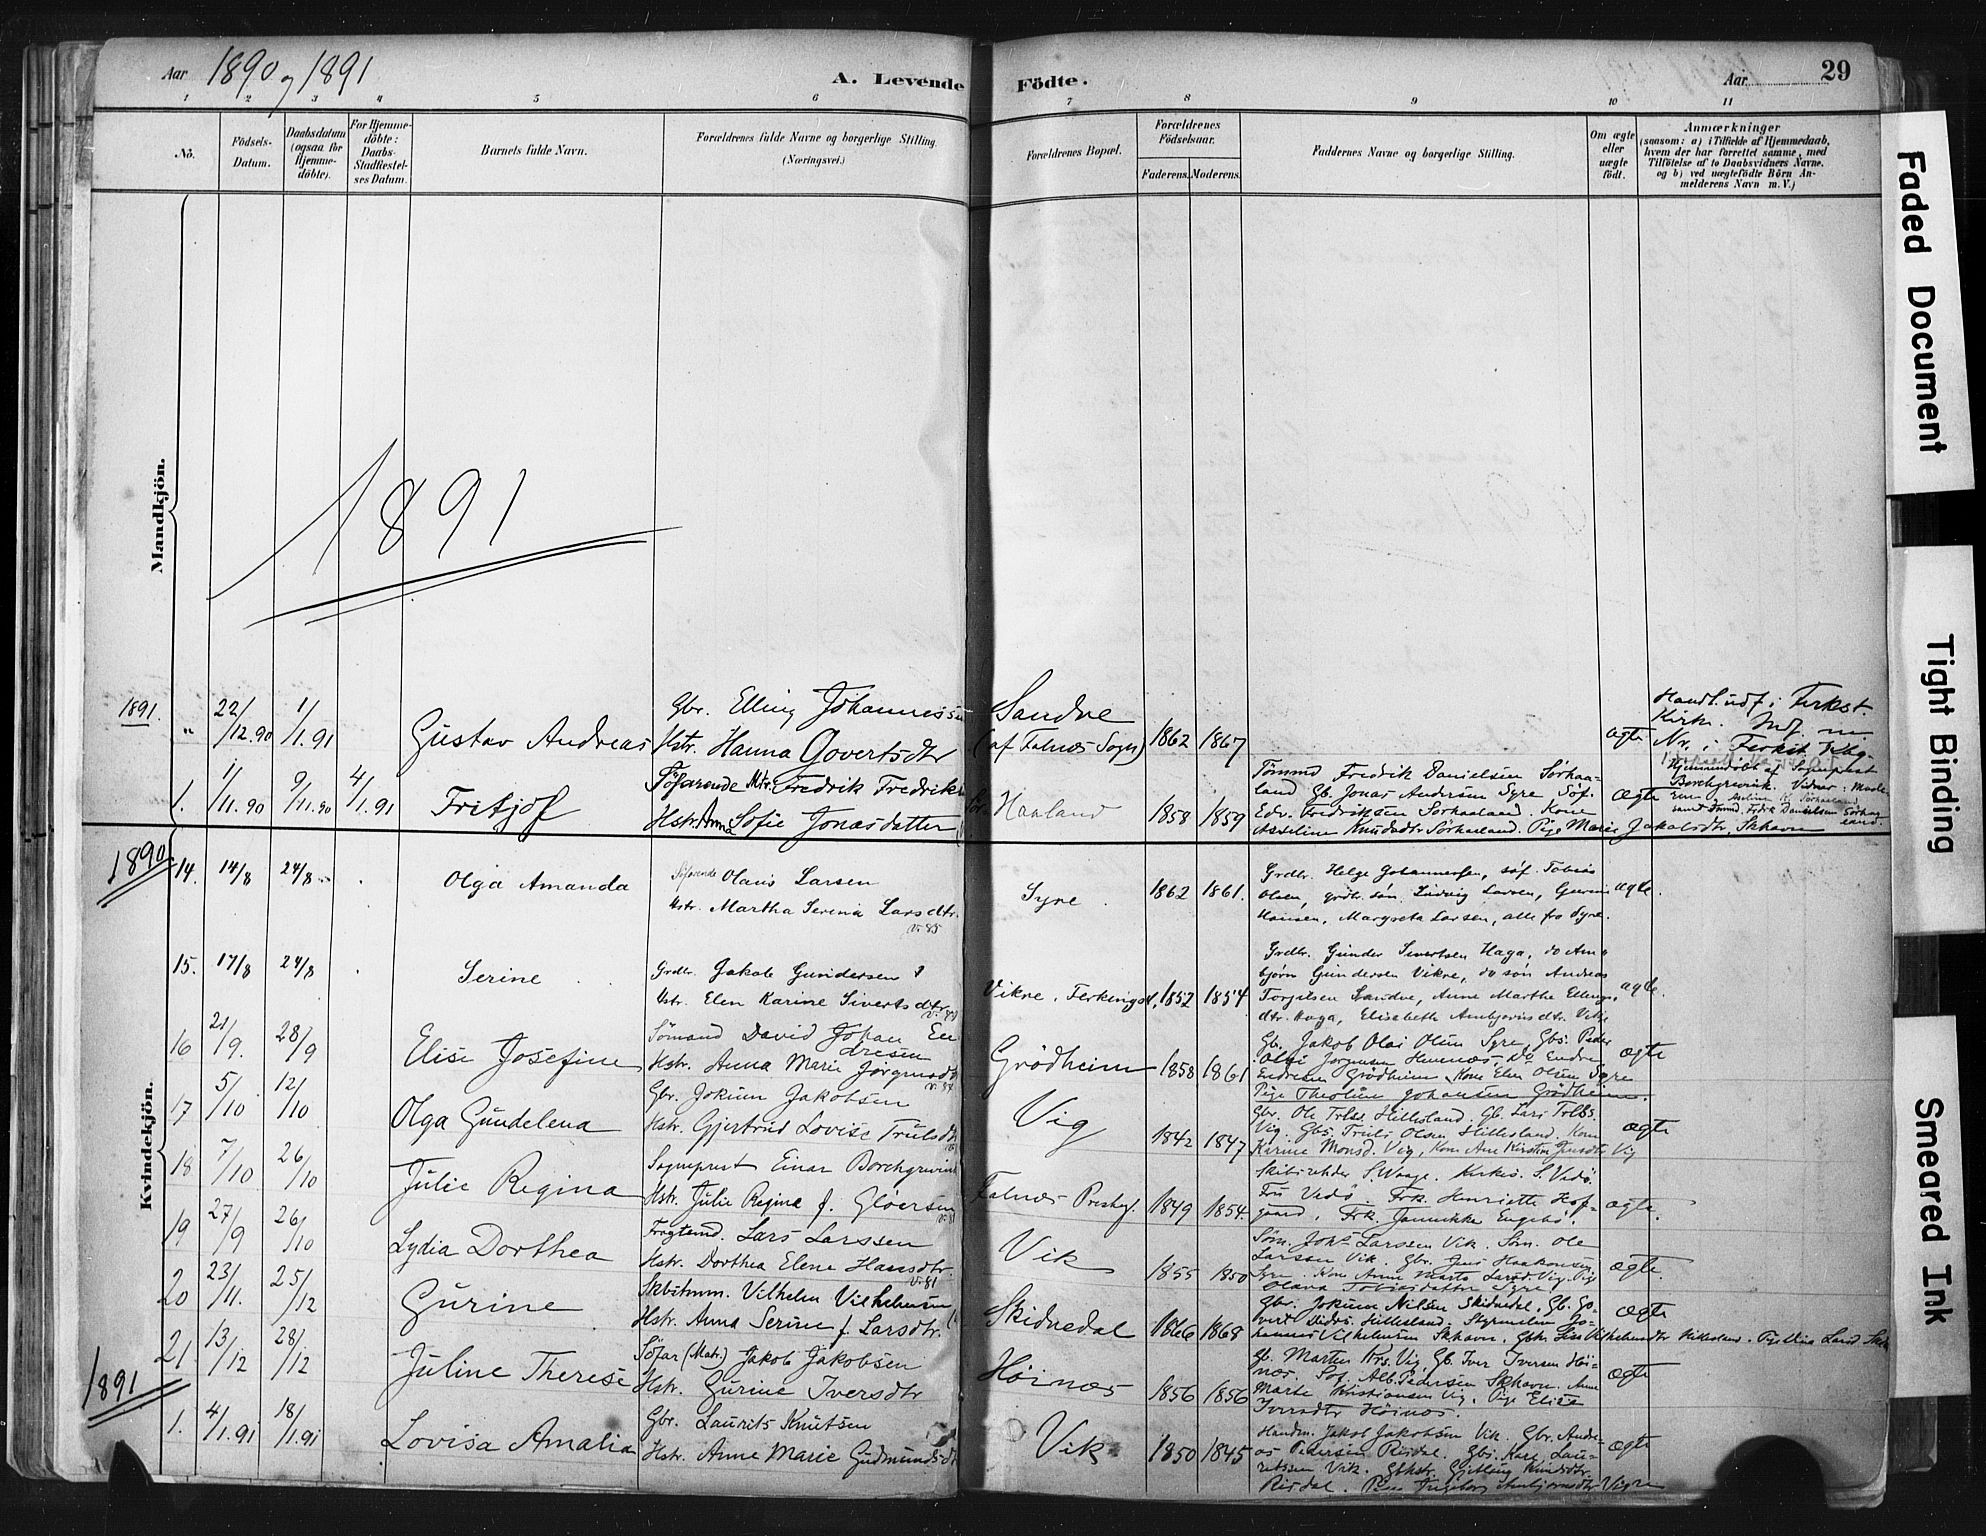 Aar 1890 og 1891
A. Levende Födte.
Aar 29
1 2 3 4 5 6 7 8 9 10 11
No.
Födsels-Datum.
Daabsdatum (ogsaa for Hjemme-döbte).
For Hjemme-döbte: Daabs-Stadfæstel-ses Datum.
Barnets fulde Navn.
Forældrenes fulde Navne og borgerlige Stilling. (Næringsvei.)
Forældrenes Bopæl.
Forældrenes Födselsaar.
Faderens. Moderens.
Faddernes Navne og borgerlige Stilling.
Om ægte eller uægte födt.
Anmærkninger
(saasom: a) i Tilfælde af Hjemmedaab, hvem der har forrettet samme, med Tilföielse af to Daabsvidners Navne. og b) ved uægtefödte Börn An-melderens Navn m. V.)
Mandkjön.
1891
1891.
" 22/12.90 1/1.91 Gustav Andreas
Gbr. Elling Johannessen
Hstr. Hanna Govertsdtr
Sandve
(af Falnæs Sogn) 1862 1867 ægte
Handl. udf. i Ferkst.
Kirke. Indf. m
Nr. i Ferkst. Kbg.
1. 1/11.90 9/11.90 4/1.91 Fritjof
Söfarende Mtr. Fredrik Fredriksen
Hstr. Anna Sofie Jonasdatter
Sör-Haaland 1858 1859
Tömmd Fredrik Danielsen Sörhaa-
land Gb. Jonas Andersen Syre Söf.
Edv. Fredriksen Sörhaaland. Kone
Asseline Knudsdtr Sörhaaland. Pige Marie Jakobsdtr. Skhavn
ægte
Hjemmedöbt af Sogneprest
Borchgrevink. Vidner: Mode-
ren
1890
Kvindekjön.
14. 14/8 24/8 Olga Amanda
Söfarende Olaus Larsen
Hstr. Martha Serina Larsdtr.
V. 85
Syre 1862 1861.
Grdbr. Helge Johannessen, söf. Tobias
Olsen, grdbr. sön. Ludvig Larsen, Gurine
Hansen, Margreta Larsen, alle fra Syre.
ægte.
15. 17/8 24/8 Serine
Grdbr. Jakob Gundersen
Hstr. Elen Karine Sivertsdtr
Vikre. Ferkingst. 1852 1854
Grdbr. Gunder Sivertsen Haga, do Am-
björn Gundersen Vikre, do sön Andreas
Torgilsen Sandve, Anne Marthe Ellings-
dtr. Haga, Elisabeth Ambjörnsdtr. Vikre
ægte.
16 21/9. 28/9 Elise Josefine
Sömand David Johan En-
dresen
Hstr. Anna Marie Jörgensdtr
Grödheim 1858 1861
Gb. Jakob Olai Olsen Syre, Gbs. Peder
Olai Jörgensen Hemnæs, Do Endre
Endresen Grödheim Kone Elen Olsen Syre
Pige Theoline Johansen Grödheim.
ægte
17 5/10 12/10 Olga Gundelena
Gbr. Jokum Jakobsen
Hstr. Gjertrud Lovise Trulsdtr
Vig 1842 1847
Gbr. Ole Trlss. Hillesland. Gb. Lars Trolls.
Vig. Gbs. Truls Olsen Hillesland. Kone
Karine Monsd. Vig, Kone Ane Kirstin Jensdtr Vig
ægte
18 7/10 26/10 Julie Regina
Sogneprest Einar Borchgrevink
Hstr. Julie Regina f. Glöersen
Falnæs Prestegd. 1849 1854.
Skibsreder S. Waage. Kirkes. S. Vedö.
Fru Vedö. Frk. Henriette Hof-
gaard. Frk. Jannikke Engebö.
ægte.
19 27/9 26/10 Lydia Dorthea
Fragtemd. Lars Larssen
Hstr. Dorthea Elene Hansdtr.
V. 81
Vik 1855 1850
Söm. Johs Larssen Vik. Söm. Ole
Larssen Vik. Gbr. Jens Haakonsen
Syre. Kone Anne Marta Larsd. Vig. Pige
Olava Tobiasdatter Syre.
ægte.
20 23/11. 25/12 Gurine
Skbstmm. Vilhelm Vilhelmsen
Hstr. Anna Serine f. Larsdtr.
Skidnedal 1866 1868
Gbr. Jokum Nilsen Skidnedal. Gb. Go-
vert Didrs. Hillesland. Styrmden Jo-
hannes Vilhelmsen Skhavn.
ægte
21 13/12 28/12 Juline Therese
Söfar (Matr.) Jakob Jakobsen
Hstr. Gurine Iversdtr
Höinæs 1856 1856
Gb. Marten Krs. Vig, Gb. Iver Iversen Höi-
næs. Söf. Alb. Pedersen Skhavn. Anne
Marte Kristiansen Vig. Pige Elise
Iversdtr Höinæs.
ægte
1891
1. 4/1.91 18/1.91 Lovisa Amalia
Gbr. Laurits Knutsen
Hstr. Anne Marie Gudmundsdtr
Vik 1850 1845
Handm. Jakob Jakobsen Vik. Gbr. Andre-
as Pedersen Risdal. Gbs. Karl Lau-
ritssen Vik. Gbhstr. Gjetlaug Knudsdtr.
Risdal. Pige Ingeborg Ambjörnsdtr Vigre
ægte
Faded Document
Tight Binding
Smeared Ink